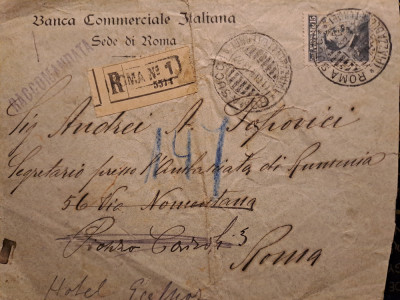 Banca Commerciale Italiana
Sede di Roma
RACCOMANDATA
R ROMA Nº 1
5514
Sig Andrei A. Popovici
147
Segretario presso l'Ambasciata di Rumenia
56 Via Nomentana
3
Roma
Hotel